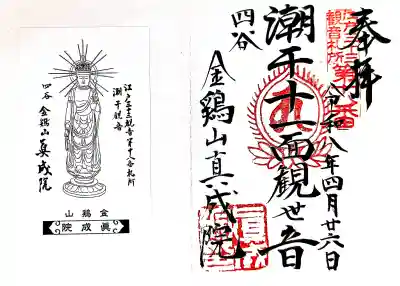 奉拝
江戸三十三
観音札所第十八番
令和八年四月廿六日
潮干十一面観世音
四谷
金鶏山真成院
江戸三十三観音第十八番札所
潮干観音
四谷 金鶏山真成院
金鶏山
眞成院